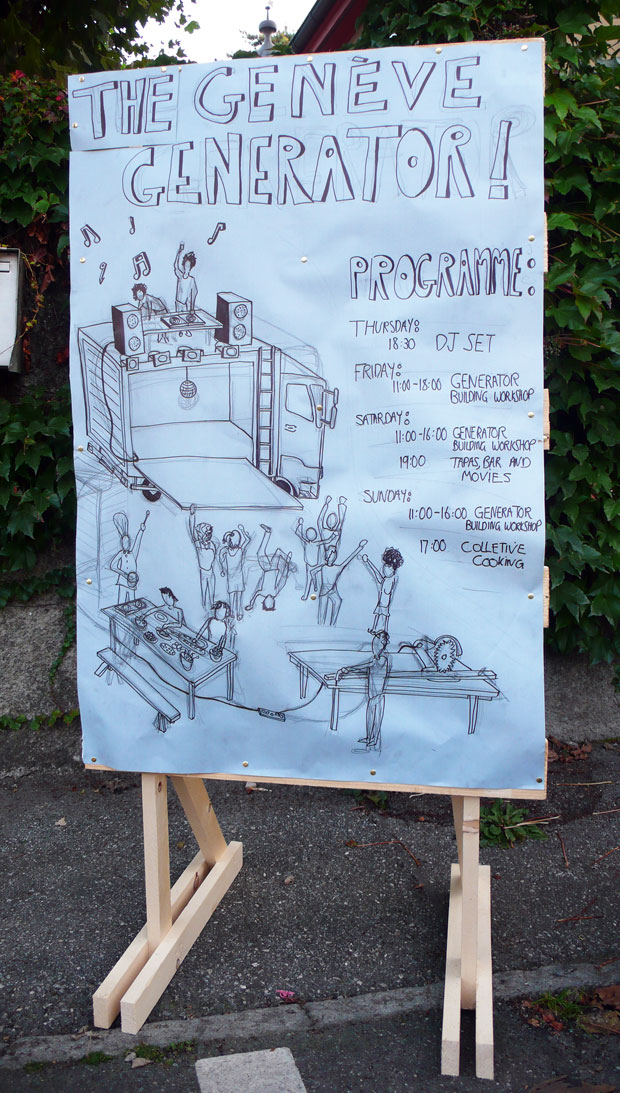 THE GENÈVE
GENERATOR!
PROGRAMME:
THURSDAY:
18:30 DJ SET
FRIDAY:
11:00-18:00 GENERATOR
BUILDING WORKSHOP
SATARDAY:
11:00-16:00 GENERATOR
BUILDING WORKSHOP
19:00 TAPAS, BAR AND
MOVIES
SUNDAY:
11:00-16:00 GENERATOR
BUILDING WORKSHOP
17:00 COLLETIVE
COOKING